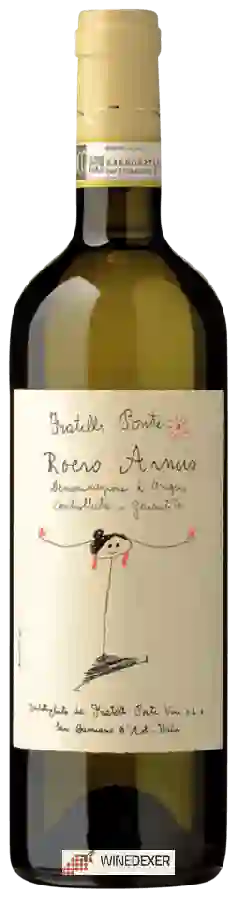 Fratelli Ponte
Roero Arneis
Denominazione di Origine
controllata e Garantita
Imbottigliato da Fratelli Ponte Vini s.r.l.
San Damiano d'Asti - Italia
WINEDEXER